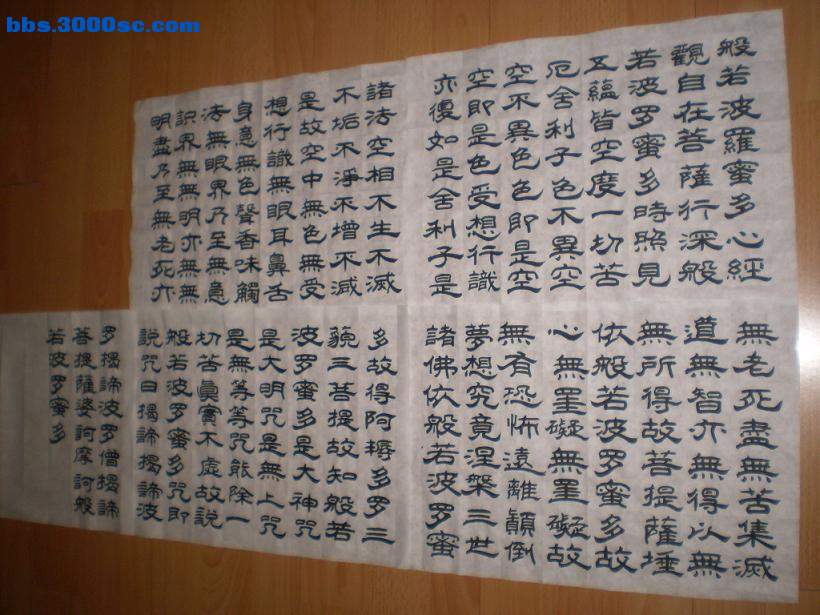 bbs.3000sc.com
般若波羅蜜多心經
觀自在菩薩行深般
若波罗蜜多時照見
五蘊皆空度一切苦
厄舍利子色不異空
空不異色色即是空
空即是色受想行識
亦復如是舍利子是
諸法空相不生不滅
不垢不淨不增不减
是故空中無色無受
想行識無眼耳鼻舌
身意無色聲香味觸
法無眼界乃至無意
識界無無明亦無無
明盡乃至無老死亦
無老死盡無苦集滅
道無智亦無得以無
無所得故菩提薩埵
依般若波罗蜜多故
心無罣礙無罣礙故
無有恐怖遠離顛倒
夢想究竟涅槃三世
諸佛依般若波罗蜜
多故得阿耨多罗三
藐三菩提故知般若
波罗蜜多是大神咒
是大明咒是無上咒
是無等等咒能除一
切苦眞實不虛故說
般若波罗蜜多咒即
說咒曰揭諦揭諦波
罗揭諦波罗僧揭諦
菩提薩婆訶摩訶般
若波罗蜜多